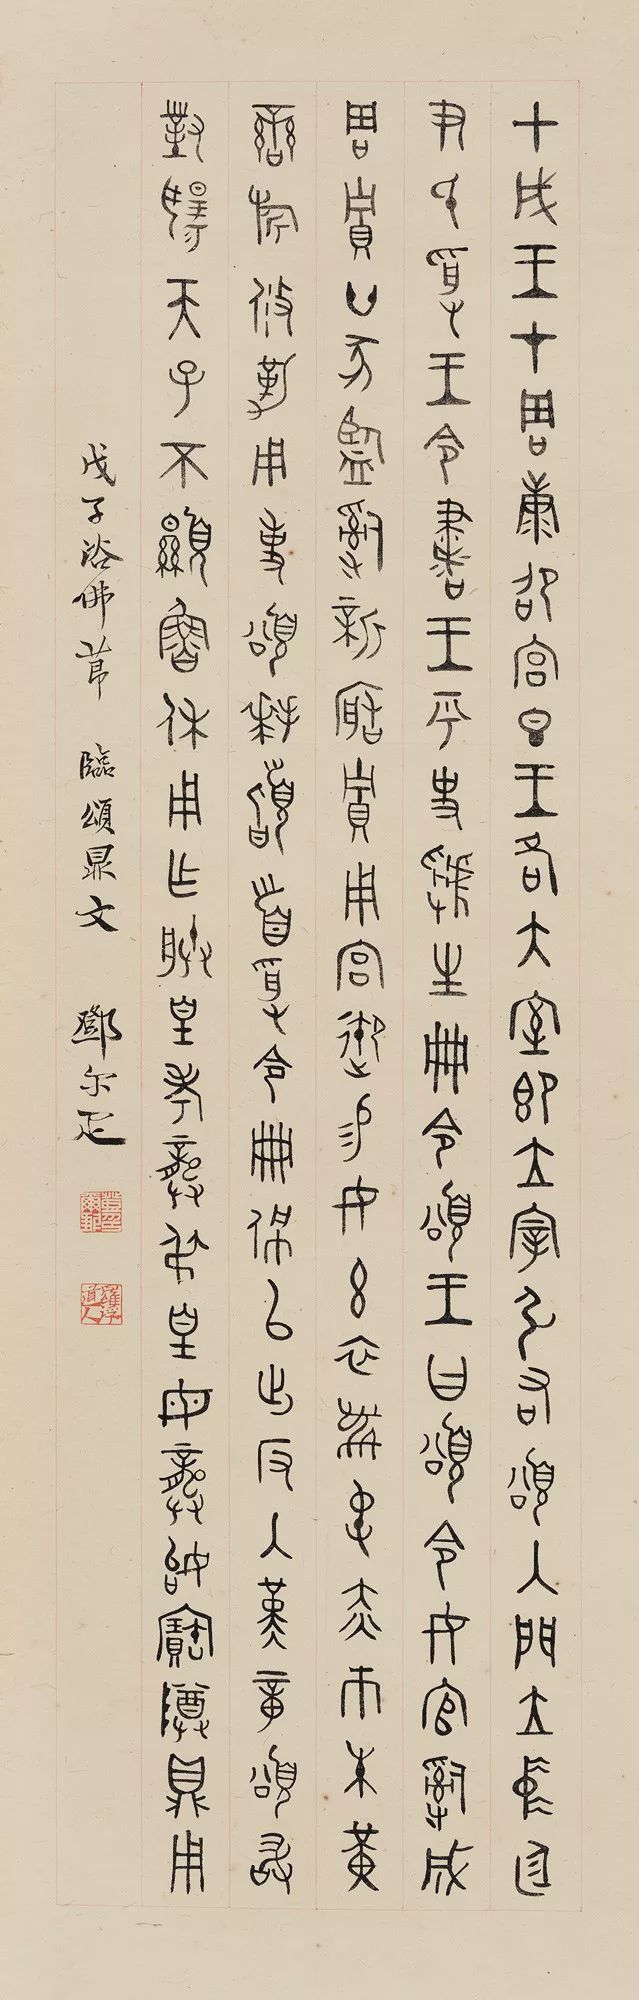 甲戌王才周康邵宮旦王各大室即立宰弘右頌入門立中廷
尹氏受王令書王乎史虢生冊令頌王曰頌令女官𤔲成
周貯廿家監𤔲新造貯用宮御易女玄衣黹屯赤巿朱黃
鑾旂攸勒用事頌拜𩒨首受令冊佩以出反入堇章頌敢
對揚天子不顯魯休用乍朕皇考龏弔皇母龏姒寶尊鼎用
戊子浴佛節 臨頌鼎文 鄧尔疋
羅浮道人